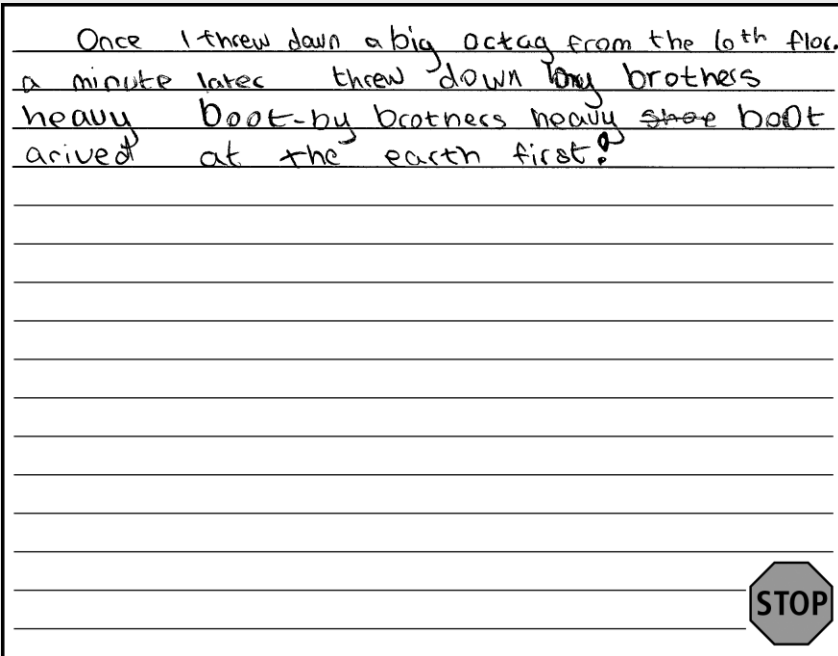 Once I threw down a big octag from the 10th flor.
a minute later threw down my brothers
heavy boot-by brothers heavy shoe boot
arived at the earth first!
STOP